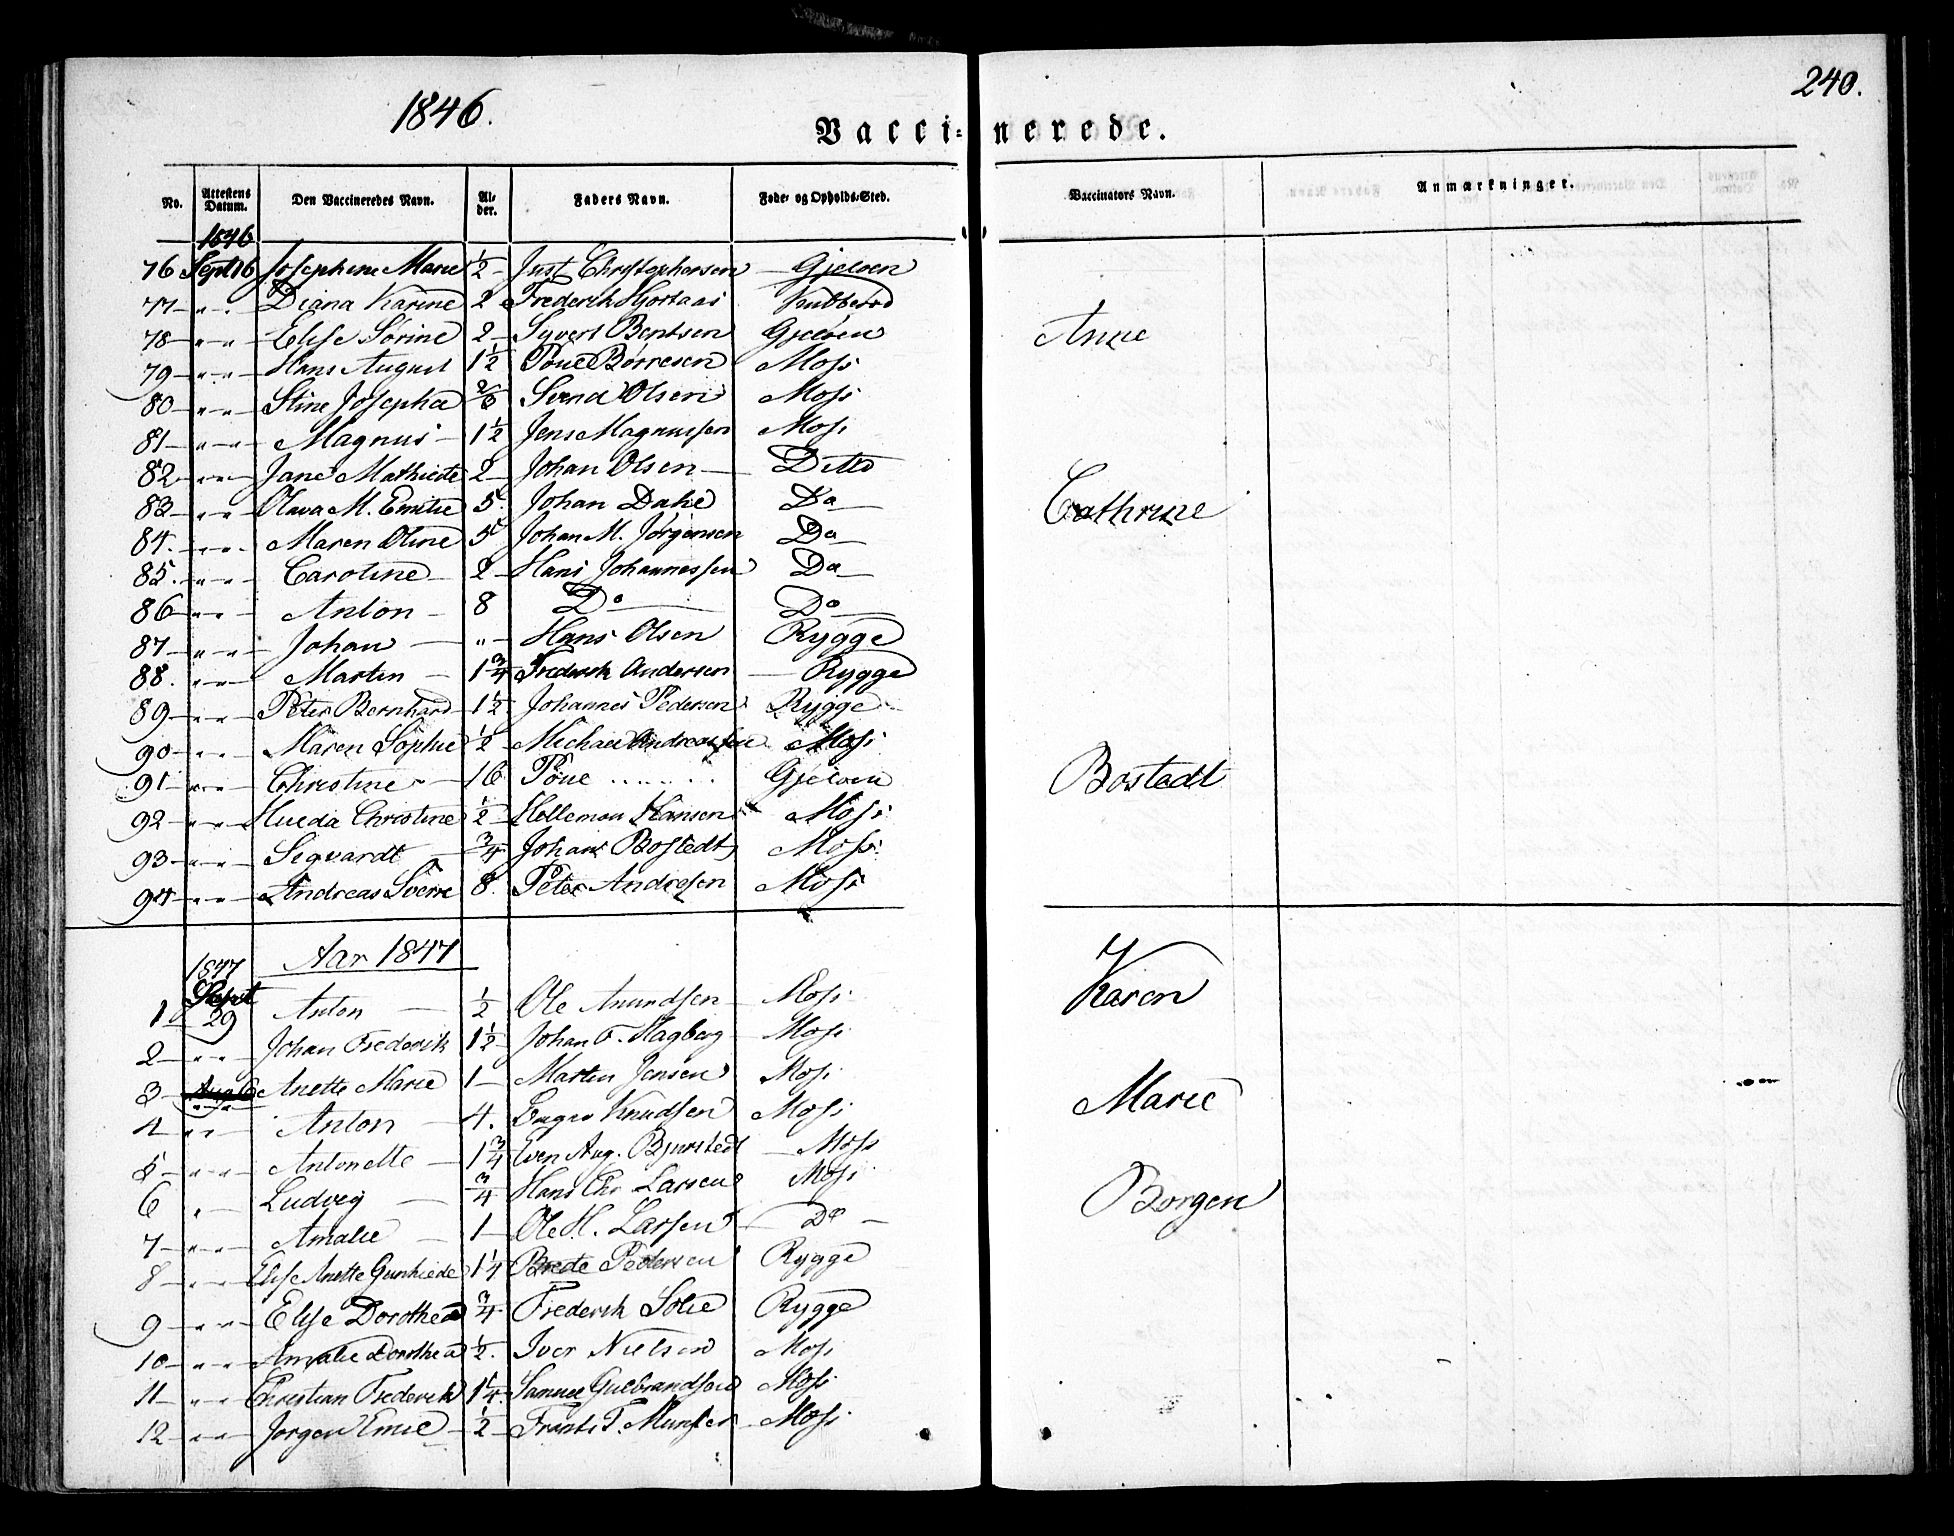 1846.
240.
Vacci- nerede.
No. Attestens Datum. Den Vaccineredes Navn. Al- der. Faders Navn. Føde- og Opholds-Sted. Vaccinators Navn. Anmærkninger.
1846
76 Sept 16 Josephine Marie 1/2 Just Christophersen Gjeloen
77 " " Diana Karine 2 Frederik
78 " " Elise Sørine 2 Syvert Bentsen Gjeloen
Anne
79 " " Hans August 1 1/2 Poul Børresen Moss
80 " " Stine Josepha Svend Olsen Moss
81 " " Magnus 1 1/2 Jens Magnussen Moss
82 " " Jane Mathilde 2 Johan Olsen Ditto
83 " " Olava M. Emilie 5 Johan Dahl Do
Cathrine
84. " " Maren Oline 5 Johan M. Jørgensen Do
85. " " Caroline 2 Hans Johannessen Do
86 " " Anton 8 Do Do
87 " " Johan " Hans Olsen Rygge
88. " " Martin 1 3/4 Frederik Andersen Rygge
89 " " Peter Bernhard 1 1/2 Johannes Pedersen Rygge
90 " " Maren Sophie 1/2 Michael Andreassen Moss
91 " " Christine 16 Poul ....... Gjeloen
Bostedt
92 " " Hulda Christine 1/2 Hansen Moss
93 " " Sigvardt 3/4 Johan Bostedt Moss
94 " " Andreas 8. Peter Andresen Moss
Aar 1847
1847
1 Sept 29 Anton 1/2 Ole Amundsen Moss
Karen
2 " " Johan Frederik 1 1/2 Johan F. Hagberg Moss
3 " " Anette Marie 1 Martin Jensen Moss
Marie
4 " " Anton 4. Knudsen Moss
5 " " Antonette 1 3/4 Even Aug. Bjurstedt Moss
6 " Ludvig 3/4 Hans Chr Larsen Moss
Borgen
7 " " Amalie 1 Ole H. Larsen Do
8 " " Elise Anette Gunhilde 1 1/4 Brede Pedersen Rygge
9 " " Elise Dorothea 3/4 Frederik Solie Rygge
10 " " Amalie Dorothea 1/2. Iver Nielsen Moss
11 " " Christian Frederik 1 1/4. Samuel Gulbrandsen Moss
12 " " Jørgen Emil 1/2 Frants T. Munster Moss